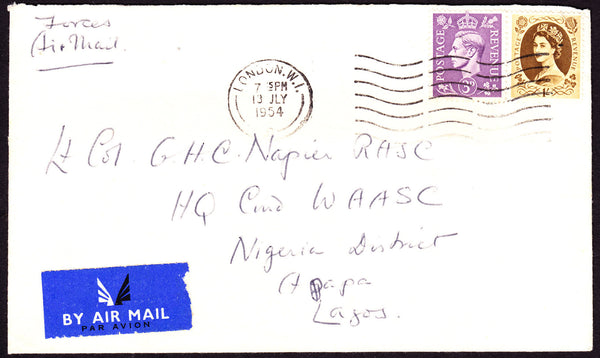 Forces
Air Mail.
POSTAGE REVENUE
3D
POSTAGE REVENUE
LONDON. W.1.
7 15PM
13 JLY
1954
Lt Col. G.H.C. Napier RASC
HQ Cmd WAASC
Nigeria District
Apapa
Lagos.
BY AIR MAIL
PAR AVION